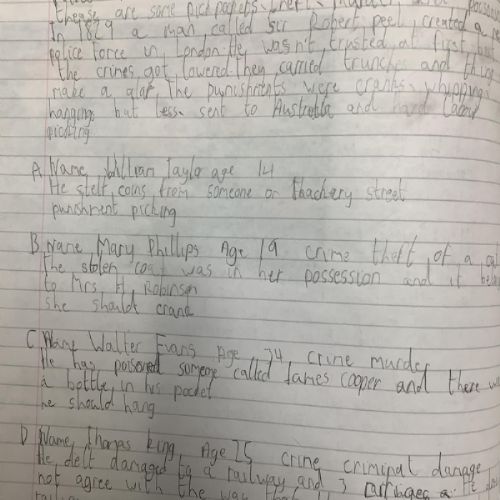 are some pickpockets theft, murder,
In 1829 a man called sir Robert peel, created a
police force in London. He wasn't trusted at first but
the crimes got lowered they carried and
make a the punishments were cranks whipping
hanging but less sent to Australia and hard labour
picking
A Name William Taylor age 14
He stelt coins from someone on thackery street
punshment picking
B Name Mary Phillips Age 19 crime theft of a
The stolen coat was in her possession and it
to Mrs H, Robinson
she should crank
C Name Walter Evans Age 34 crime murder
He has poisoned someone called James Cooper and there
a bottle in his pocket
he should hang
D Name, Thomas King, Age 15 crime criminal damage
He delt damaged to a railway and 3
not agree with the way